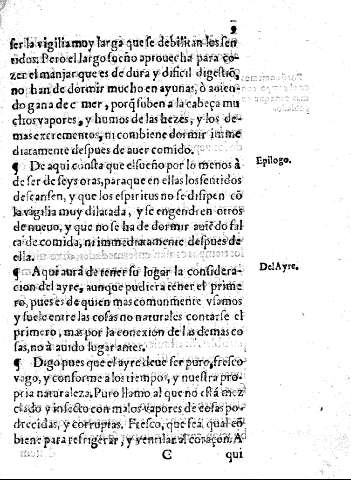 9
ser la vigilia muy larga que se debilitan los sen
tidos: Pero el largo sueño aprouecha para co-
zer el manjar que es de dura y dificil digestiõ,
no han de dormir mucho en ayunas, ò auien-
do gana de c mer, porq̃ suben a la cabeça mu
chos vapores, y humos de las hezes, y los de-
mas excrementos, ni combiene dormir inme
diatamente despues de auer comido.
¶ De aqui consta que el sueño por lo menos à
de ser de seys oras, para que en ellas los sentidos
descansen, y que los espiritus no se disipen cõ
la vigilia muy dilatada, y se engendren otros
de nueuo, y que no se ha de dormir auiẽdo fal
ta de comida, ni immediatamente despues de
ella.
Epilogo.
¶ Aqui aurà de tener su lugar la considera-
cion del ayre, aunque pudiera tener el prime
ro, pues es de quien mas comunmente vsamos
y suele entre las cosas no naturales contarse el
primero, mas por la conexion de las demas co
sas, no à auido lugar antes.
Del Ayre.
¶ Digo pues que el ayre deue ser puro, fresco
vago, y conforme a los tiempos, y nuestra pro-
pria naturaleza. Puro llamo al que no està mez
clado y infecto con malos vapores de cosas po-
drecidas, y corruptas. Fresco, que sea, qual cõ
biene para refrigerar, y ventilar al coraçon. A
C qui